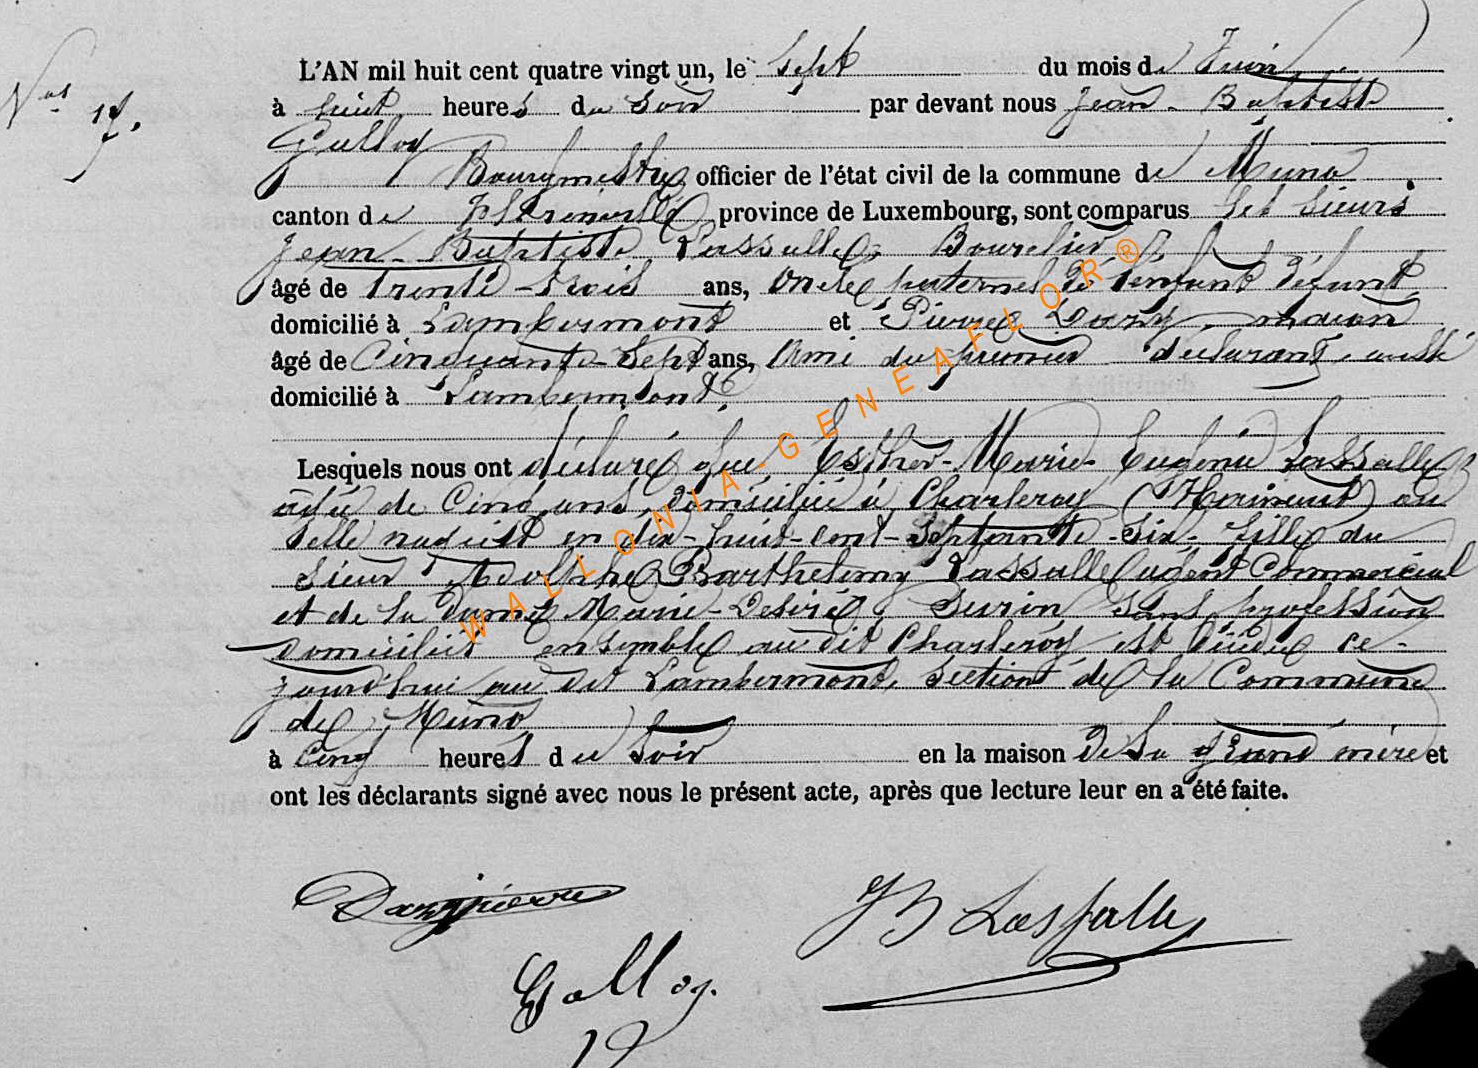 Nos 17.
L'AN mil huit cent quatre vingt un, le sept du mois de Juin
à huit heures du soir par devant nous Jean-Baptiste
Galloy
Bourgmestre officier de l'état civil de la commune de Muno
canton de Florenville province de Luxembourg, sont comparus les sieurs
Jean-Baptiste Lassalle, Bourelier
âgé de trente-trois ans, oncle paternel de l'enfant défunt
domicilié à Lambermont et Pierre Dazy, maçon
âgé de Cinquante-Sept ans, Ami du premier déclarant, aussi
domicilié à Lambermont.
Lesquels nous ont déclaré que Esther-Marie-Eugénie Lassalle
âgée de Cinq ans, domiciliée à Charleroy (Hainaut) où
elle naquit en dix-huit-cent-septante-six, fille du
sieur Adolphe Barthélemy Lassalle agent Commercial
et de la dame Marie-Desirée, Surin sans profession
domiciliés ensemble au dit Charleroy est décédée ce-
jourd'hui au dit Lambermont, section de la Commune
de Muno
à Cinq heures du soir en la maison de sa grand mère et
ont les déclarants signé avec nous le présent acte, après que lecture leur en a été faite.
Dazy pierre
JB Lassalle
Galloy.
WALLONIA-GENEAFLOR®